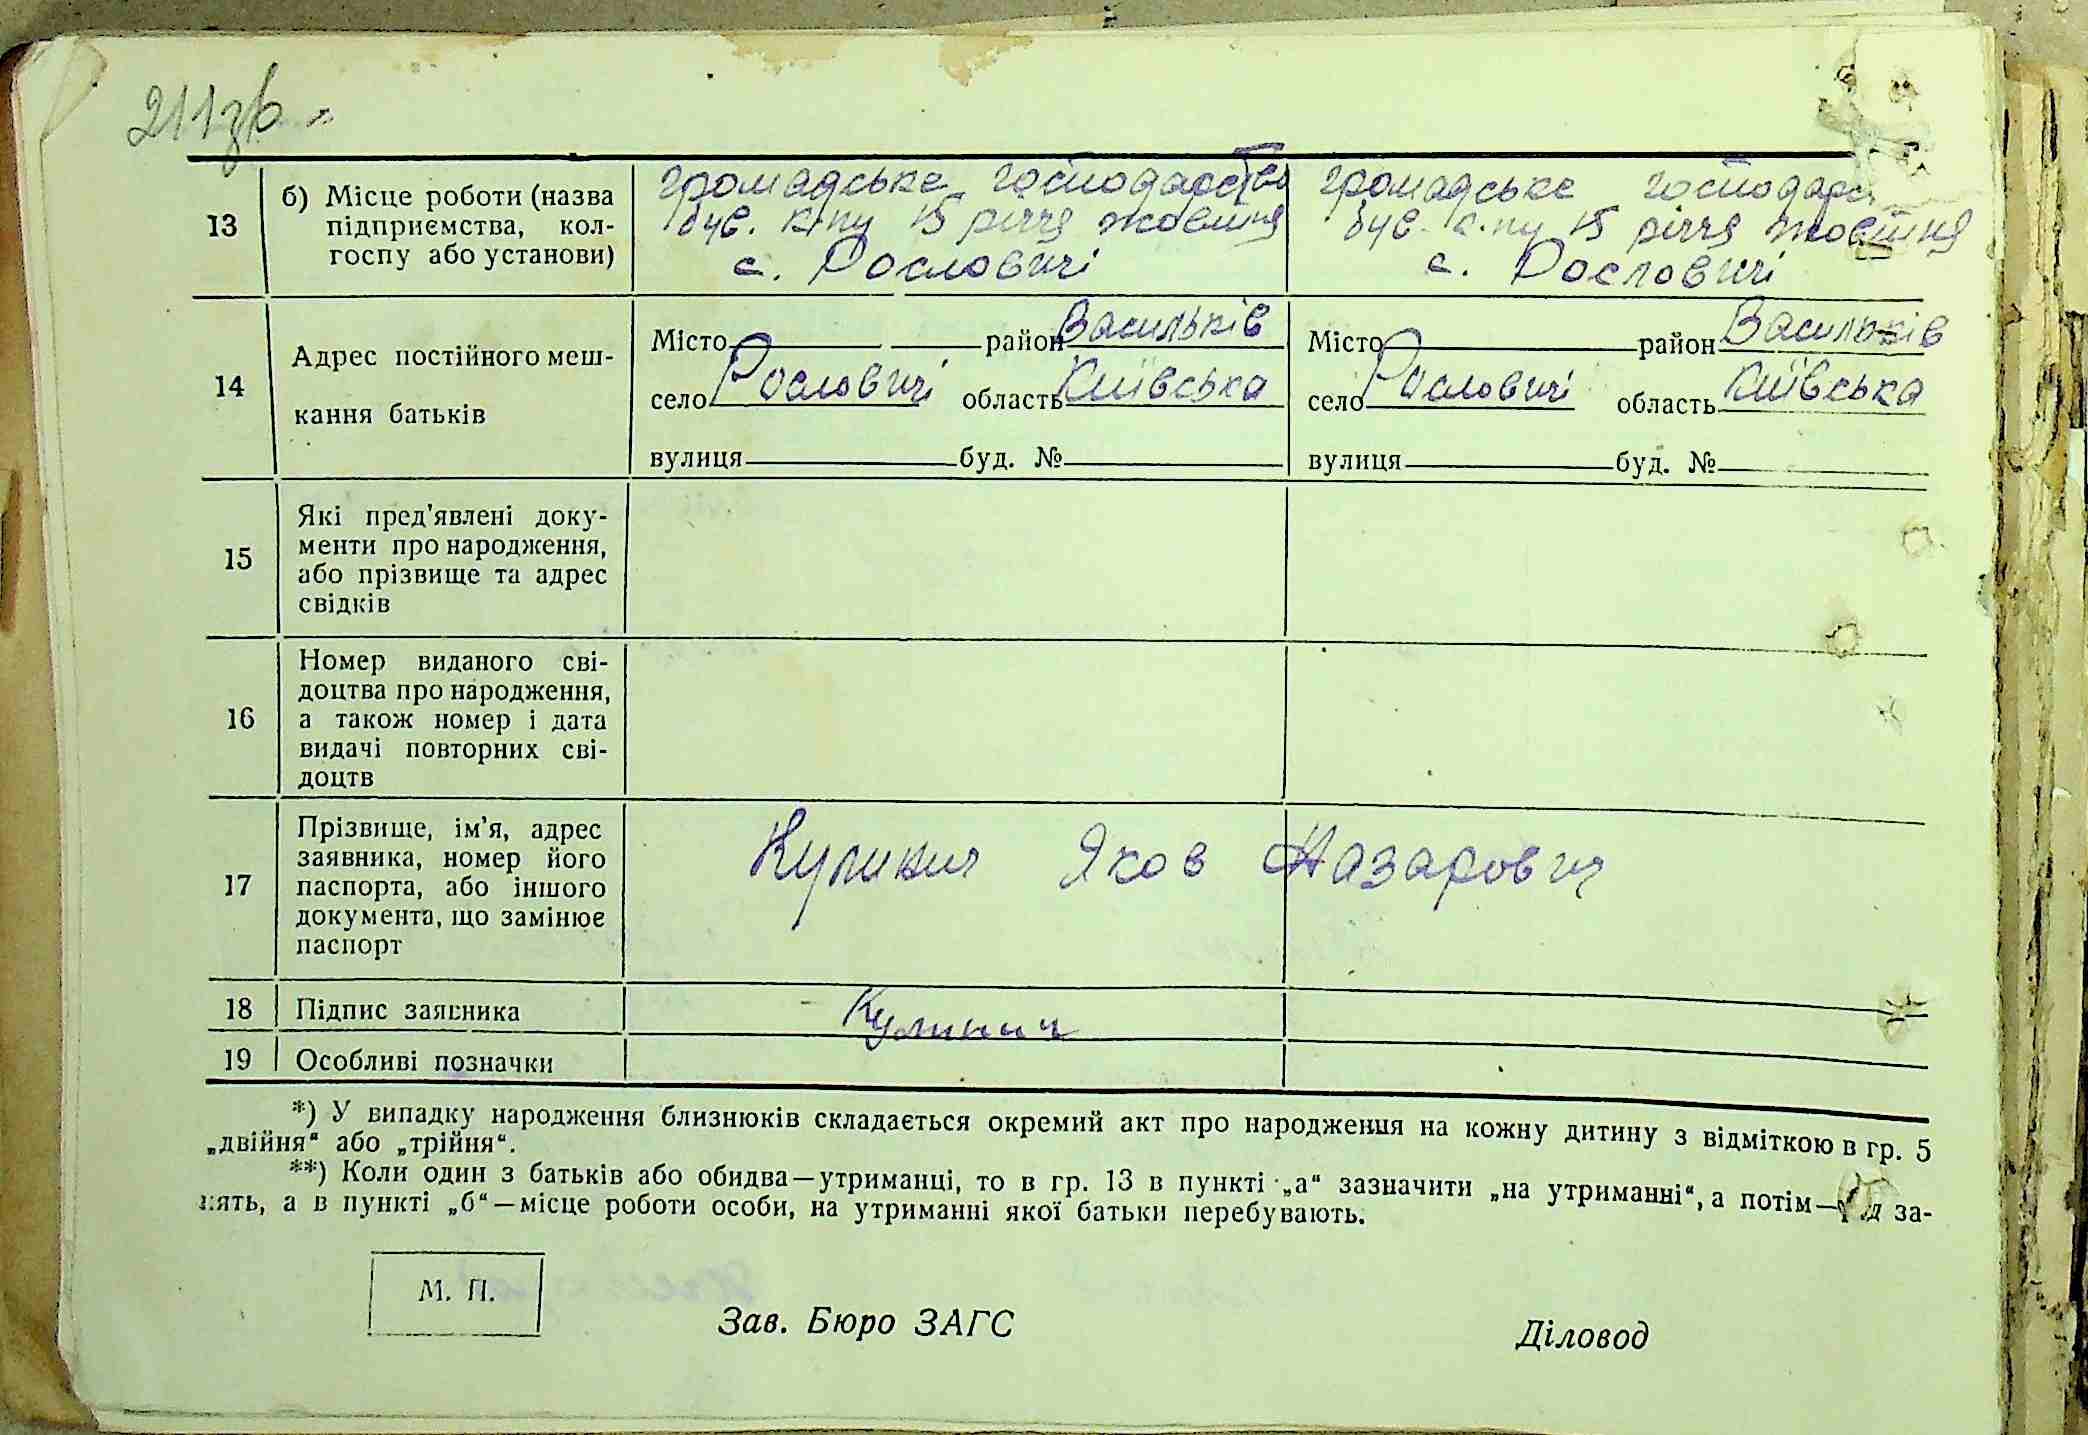 211зв
13
б) Місце роботи (назва
підприємства, кол-
госпу або установи)
громадське господарство
був. к-пу 15 річчя жовтня
с. Рословичі
громадське господарс
був. к-пу 15 річчя жовтня
с. Рословичі
14
Адрес постійного меш-
кання батьків
Місто район Васильків
село Рословичі область Київська
вулиця буд. №
Місто район Васильків
село Рословичі область Київська
вулиця буд. №
15
Які пред'явлені доку-
менти про народження,
або прізвище та адрес
свідків
16
Номер виданого сві-
доцтва про народження,
а також номер і дата
видачі повторних сві-
доцтв
17
Прізвище, ім'я, адрес
заявника, номер його
паспорта, або іншого
документа, що замінює
паспорт
Кулинич Яков Назарович
18 Підпис заявника
Кулинич
19 Особливі позначки
*) У випадку народження близнюків складається окремий акт про народження на кожну дитину з відміткою в гр. 5
„двійня“ або „трійня“.
**) Коли один з батьків або обидва—утриманці, то в гр. 13 в пункті „а“ зазначити „на утриманні“, а потім— за-
нять, а в пункті „б“—місце роботи особи, на утриманні якої батьки перебувають.
М. П.
Зав. Бюро ЗАГС
Діловод